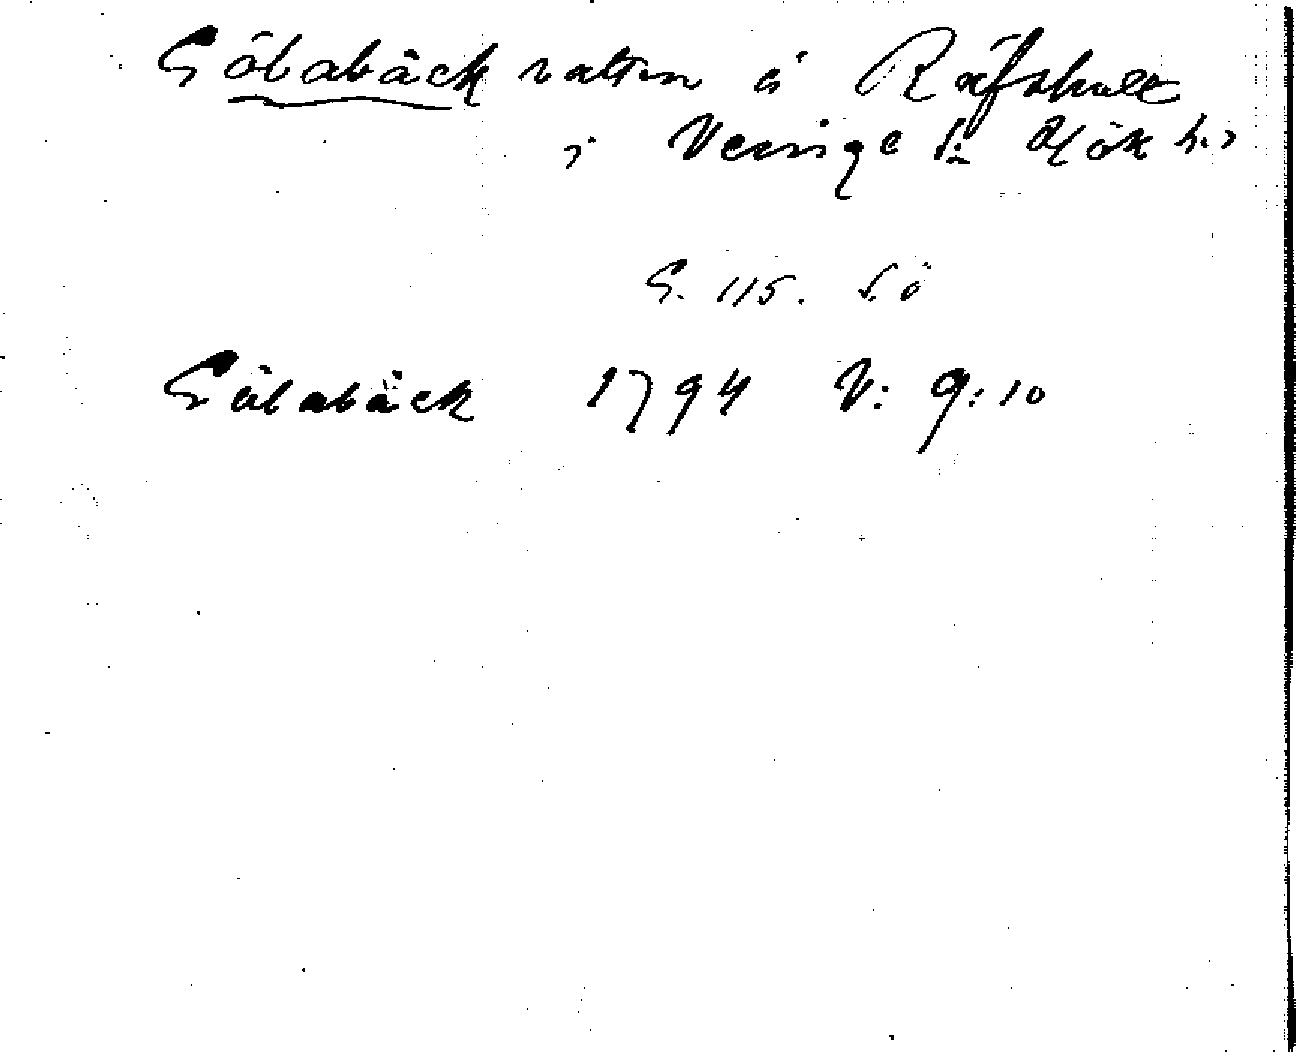 Gölabäck vatten å Räfshult
i Veinge s:n Hök h.
G. 115. s. ö
Gölabäck 1794 V: 9:10